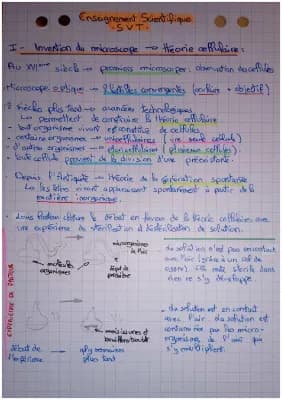 Enseignement Scientifique
- SVT -
I - Invention du microscope → théorie cellulaire :
Au XVIème siècle → premiers microscopes : observation de cellules
Microscope optique → 2 lentilles convergentes (oculaire + objectif)
siècles plus tard → avancées technologiques
permettent de construire la théorie cellulaire
tout organisme vivant est constitué de cellules
certains organismes → unicellulaires (une seule cellule)
d'autres organismes → pluricellulaires (plusieurs cellules)
toute cellule provient de la division d'une préexistante.
Depuis l'Antiquité → théorie de la génération spontanée
Les êtres vivants apparaissent spontanément à partir de la
matière inorganique.
Louis Pasteur clôture le débat en faveur de la théorie cellulaire avec
une expérience de stérilisation de solution.
EXPÉRIENCE DE PASTEUR
micro-organismes
de l'air
+
dépôt de
poussière
molécules
organiques
La solution n'est pas en contact
avec l'air (grâce à un col de
cygne). Elle reste stérile dans
se développe.
La solution est en contact
avec l'air. La solution est
contaminée par les micro-
organismes de l'air qui
s'y multiplient.
début de
l'expérience
→
qlq semaines
plus tard